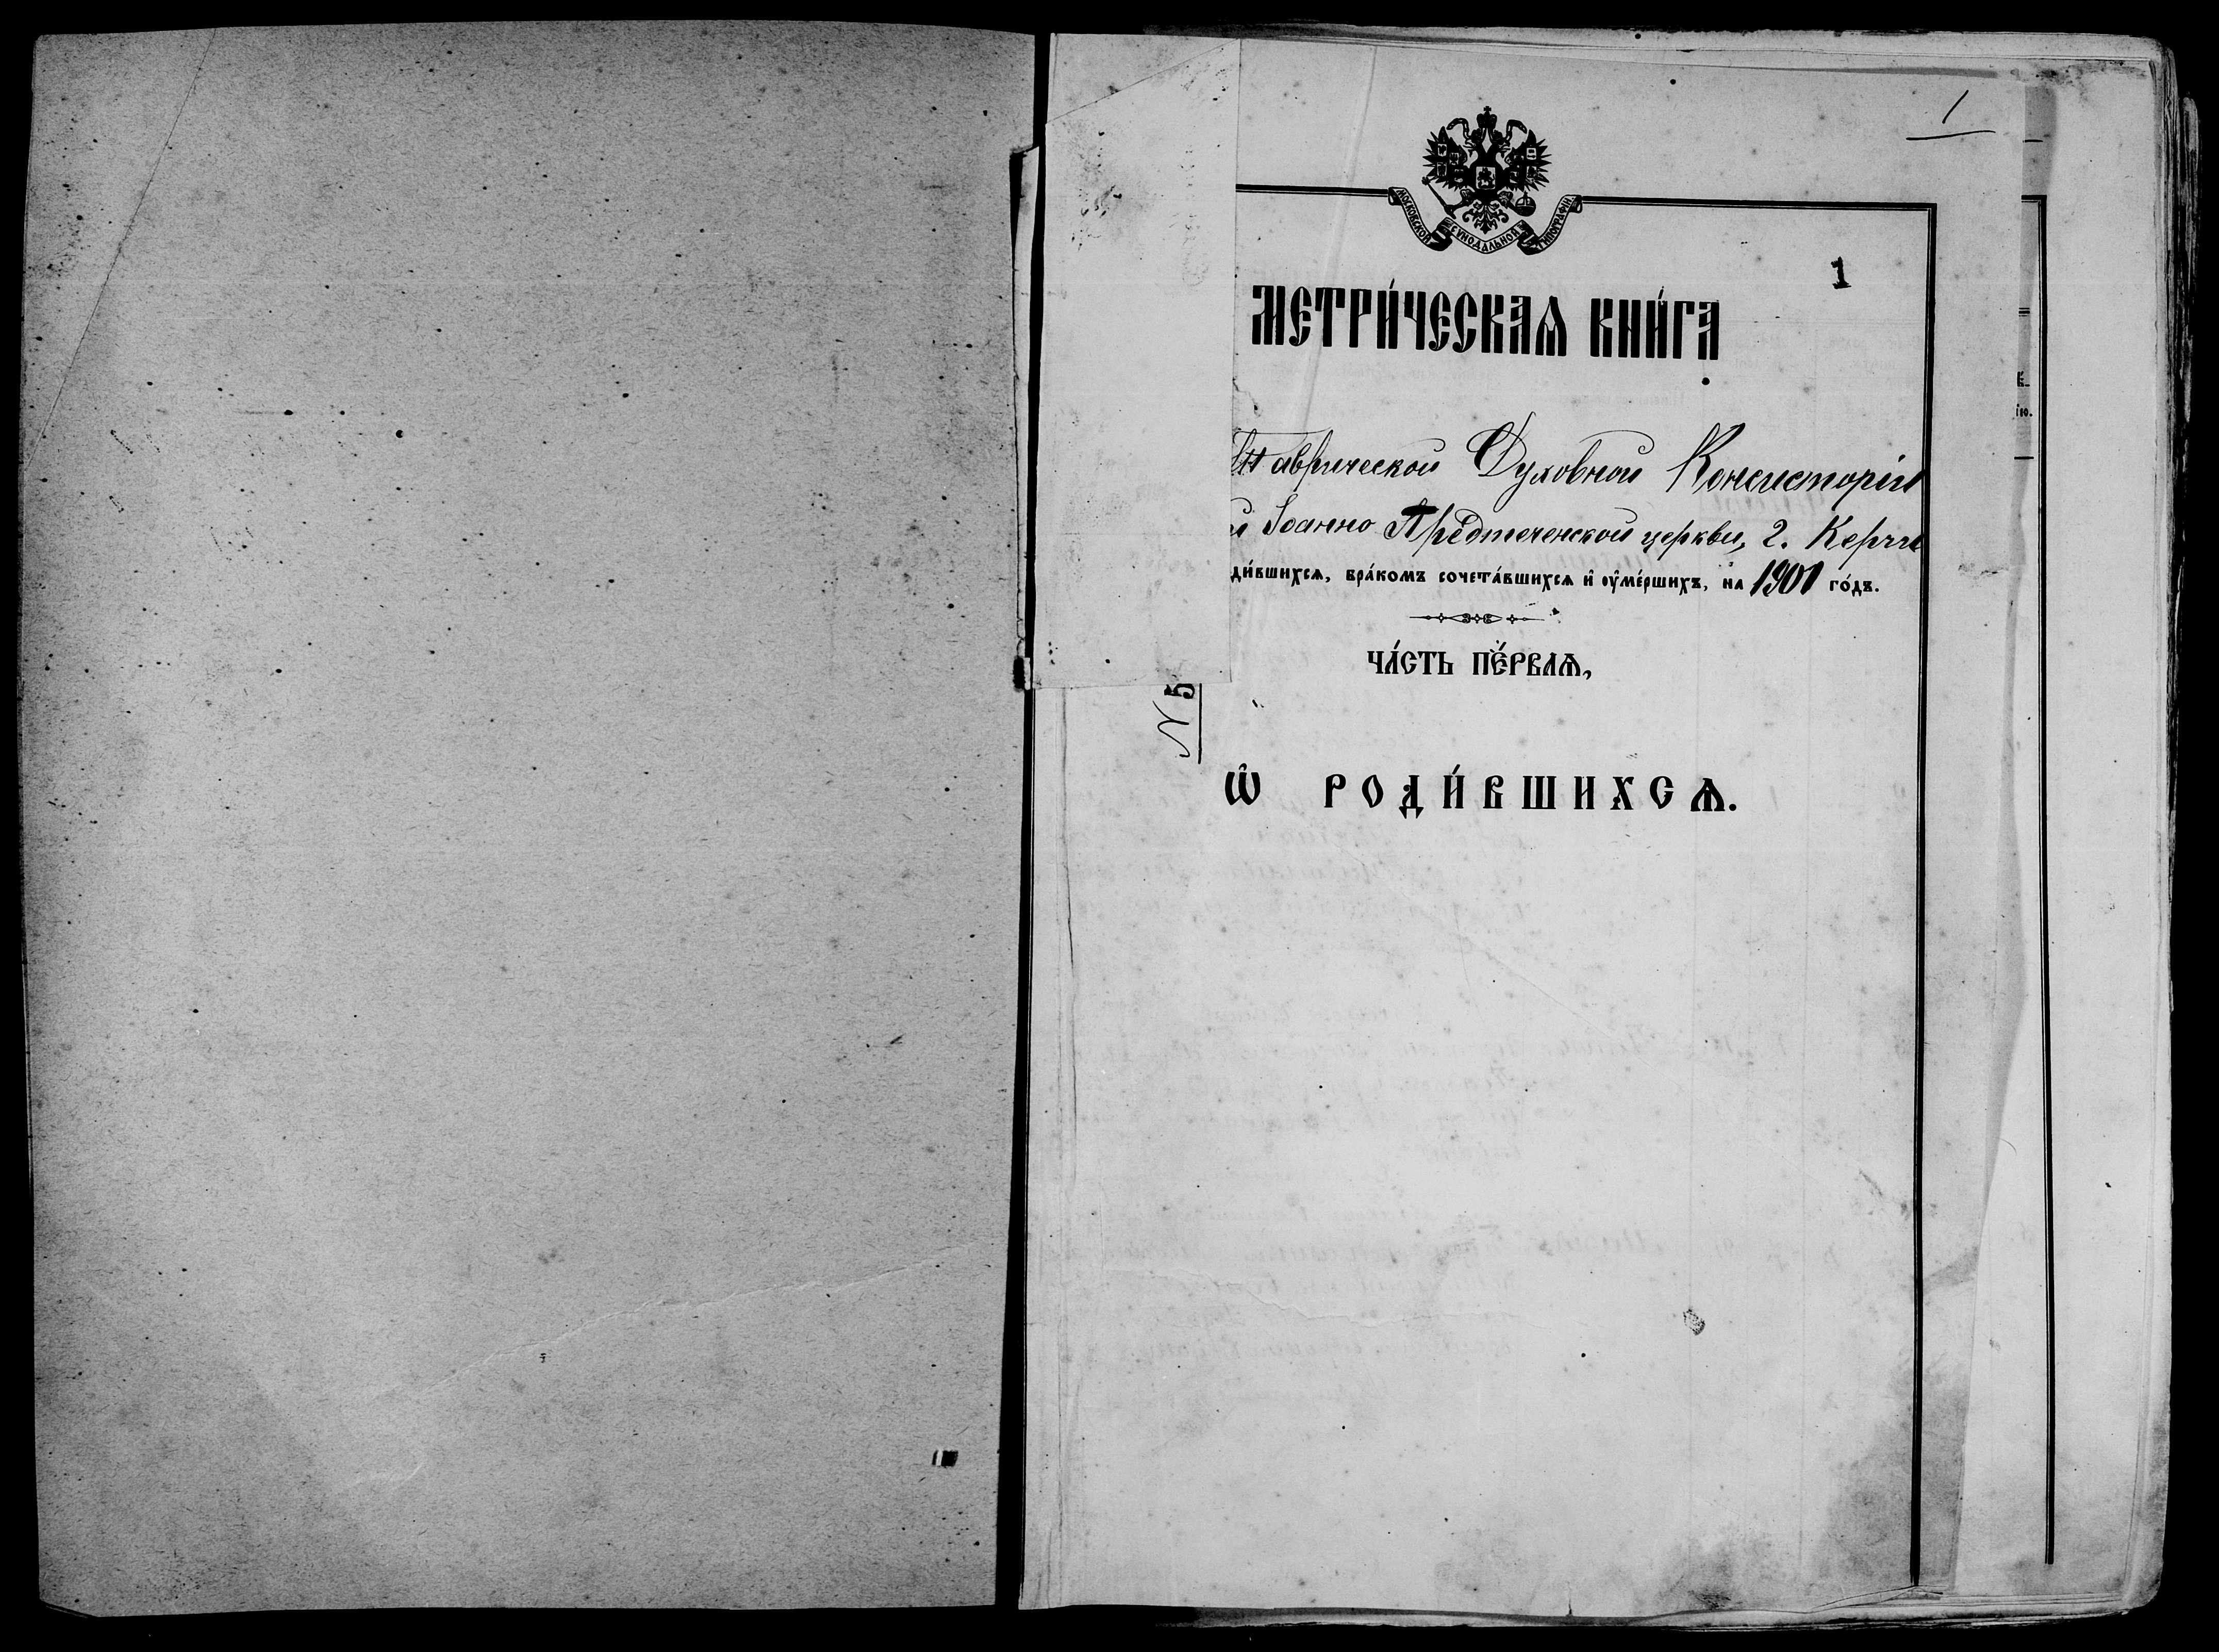 1
МОСКОВСКОЙ СѴНОДАЛЬНОЙ ТИПОГРАФІИ.
1
МЕТРИ́ЧЕСКАѦ КНИ́ГА
Таврической Духовной Консисторіи
Іоанно Предтеченской церкви, г. Керчи
ди́вшихсѧ, бра́комъ сочета́вшихсѧ и҆ оу҆ме́ршихъ, на 1901 го́дъ.
ЧА́СТЬ ПЕ́РВАѦ,
N 5
Ѡ҆ РОДИ́ВШИХСѦ.